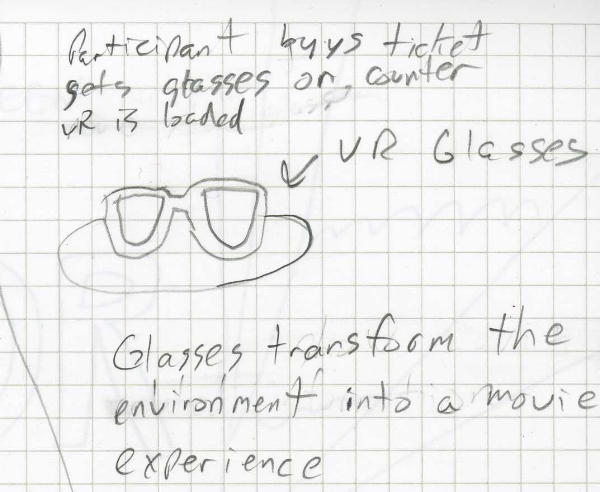 Participant buys ticket
gets glasses on counter
VR is loaded
VR Glasses
Glasses transform the
environment into a movie
experience